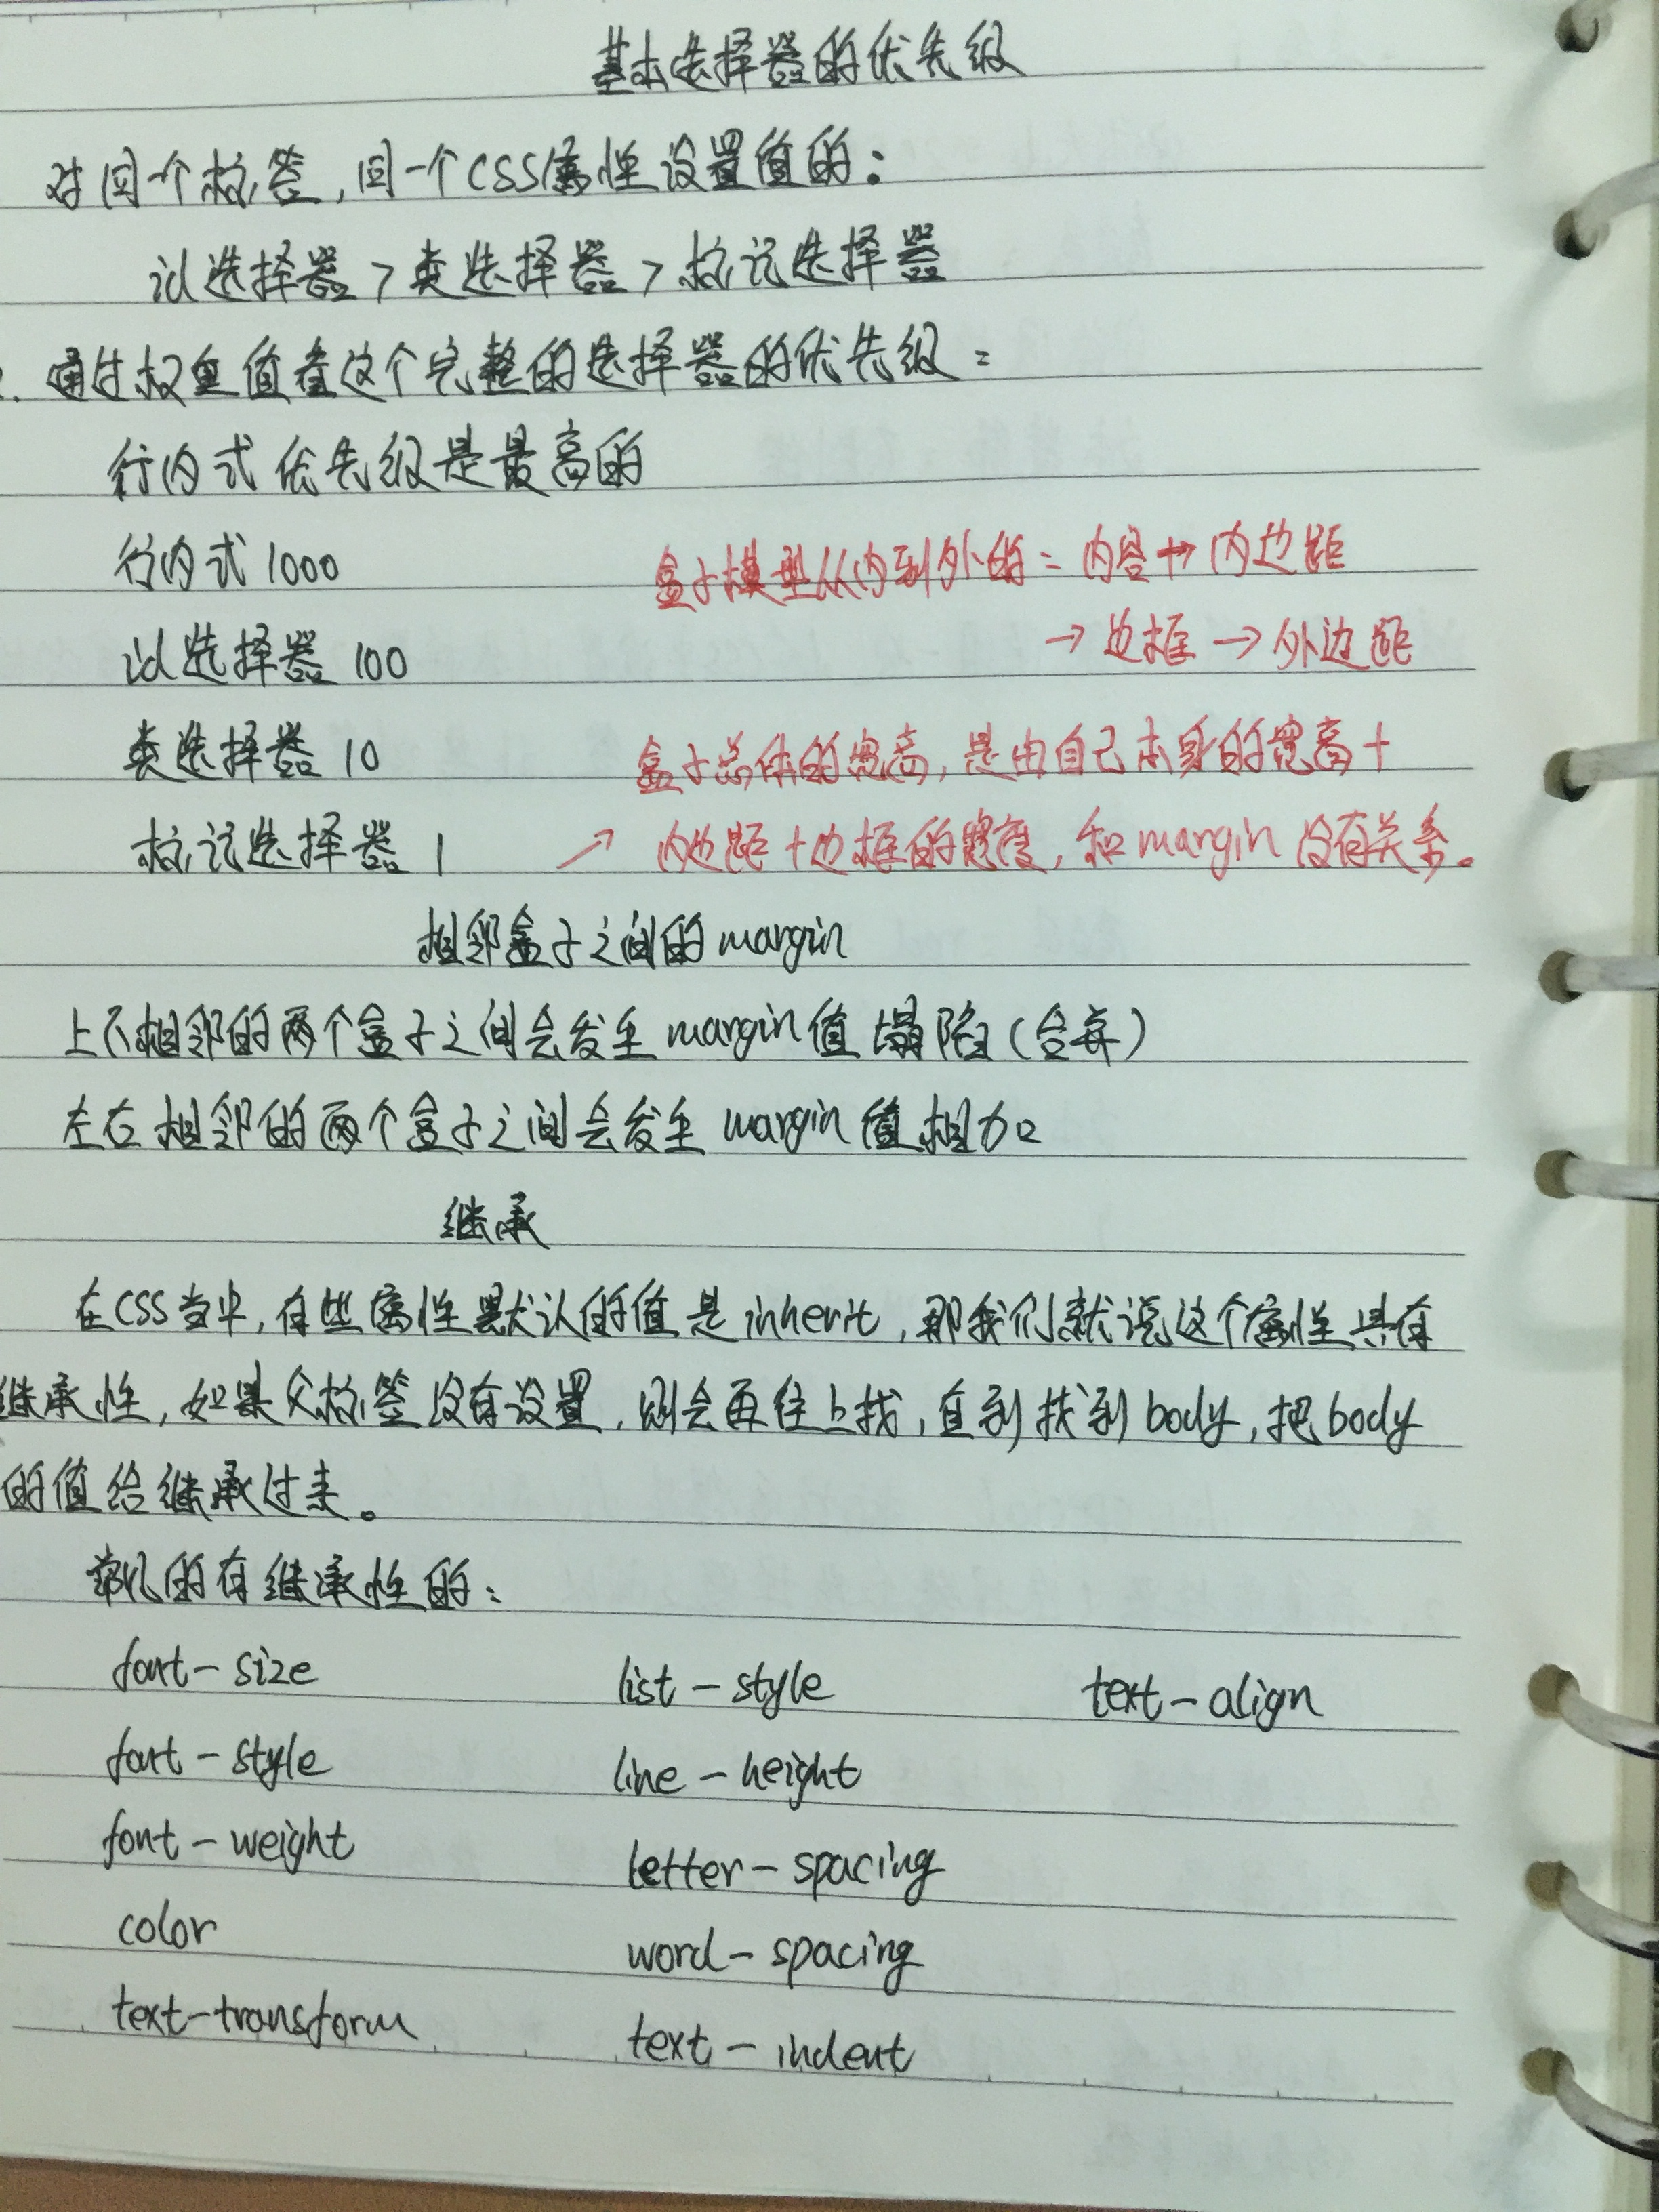 基本选择器的优先级
对同一个标签,同一个CSS属性设置值的:
id选择器>类选择器>标记选择器
. 通过权重值看这个完整的选择器的优先级:
行内式优先级是最高的
行内式 1000
盒子模型从内到外的:内容→内边距
id选择器 100
→边框→外边距
类选择器 10
盒子总体的宽高,是由自己本身的宽高+
标记选择器 1
↗ 内边距+边框的宽度,和margin没有关系。
相邻盒子之间的margin
上下相邻的两个盒子之间会发生margin值塌陷(合并)
左右相邻的两个盒子之间会发生margin值相加
继承
在CSS当中,有些属性默认的值是inherit,那我们就说这个属性具有
继承性,如果父标签没有设置,则会再往上找,直到找到body,把body
的值给继承过来。
常见的有继承性的:
font-size list-style text-align
font-style line-height
font-weight letter-spacing
color word-spacing
text-transform text-indent